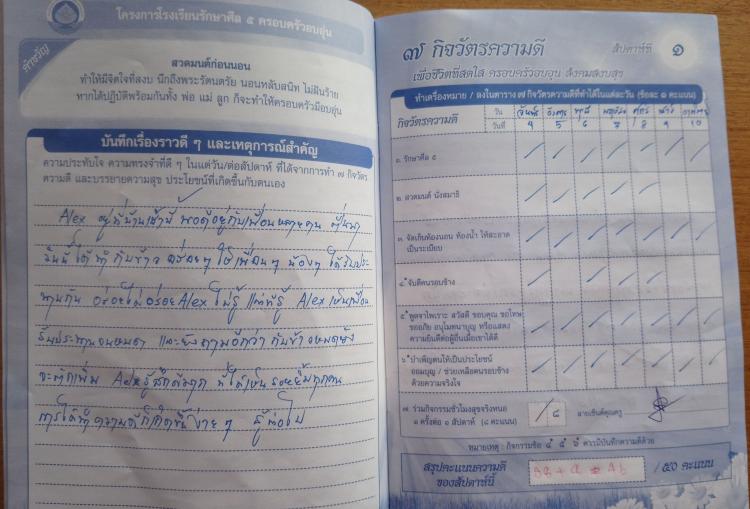 โครงการโรงเรียนรักษาศีล ๕ ครอบครัวอบอุ่น
คำขวัญ
สวดมนต์ก่อนนอน
ทำให้มีจิตใจที่สงบ นึกถึงพระรัตนตรัย นอนหลับสนิท ไม่ฝันร้าย
หากได้ปฏิบัติพร้อมกันทั้ง พ่อ แม่ ลูก ก็จะทำให้ครอบครัวมีอบอุ่น
บันทึกเรื่องราวดี ๆ และเหตุการณ์สำคัญ
ความประทับใจ ความทรงจำที่ดี ๆ ในแต่ละวัน/ต่อสัปดาห์ ที่ได้จากการทำ ๗ กิจวัตร
ความดี และบรรยายความสุข ประโยชน์ที่เกิดขึ้นกับตนเอง
Alex อยู่ที่บ้านเช้านี้ พอดีอยู่กับเพื่อนหลายคน
วันนี้ได้ทำกับข้าว อร่อยๆ ให้เพื่อนๆ น้องๆ ได้รับประ
ทานกัน อร่อยไม่อร่อย Alex ไม่รู้ แต่ที่รู้ Alex เห็นเพื่อน
รับประทานจนหมด และยังถามอีกว่า กับข้าวหมดยัง
จะทำเพิ่ม Alex รู้สึกดีมาก ที่ได้เห็นรอยยิ้มทุกคน
การได้ทำความดีก็เกิดขึ้นง่าย ๆ สู้ต่อไป
๗ กิจวัตรความดี สัปดาห์ที่ ๑
เพื่อชีวิตที่สดใส ครอบครัวอบอุ่น สังคมสงบสุข
ทำเครื่องหมาย / ลงในตาราง ๗ กิจวัตรความดีที่ทำได้ในแต่ละวัน (ข้อละ ๑ คะแนน)
กิจวัตรความดี วัน จันทร์ อังคาร พุธ พฤหัส ศุกร์ เสาร์ อาทิตย์
วันที่ 4 5 6 7 8 9 10
๑. รักษาศีล ๕
๒. สวดมนต์ นั่งสมาธิ
๓. จัดเก็บห้องนอน ห้องน้ำ ให้สะอาด
เป็นระเบียบ
๔.* จับดีคนรอบข้าง
๕.* พูดจาไพเราะ สวัสดี ขอบคุณ ขอโทษ
ขออภัย อนุโมทนาบุญ หรือแสดง
ความยินดีต่อผู้อื่นเมื่อเขาได้ดี
๖.* บำเพ็ญตนให้เป็นประโยชน์
ออมบุญ / ช่วยเหลือคนรอบข้าง
ด้วยความจริงใจ
๗. ร่วมกิจกรรมชั่วโมงสุขจริงหนอ
๑ ครั้งต่อ ๑ สัปดาห์ (๘ คะแนน)
/ ๘
ลายเซ็นต์คุณครู
หมายเหตุ : กิจกรรมข้อ ๔ ๕ ๖ ควรมีบันทึกความดีด้วย
สรุปคะแนนความดี
ของสัปดาห์นี้
/ ๕๐ คะแนน